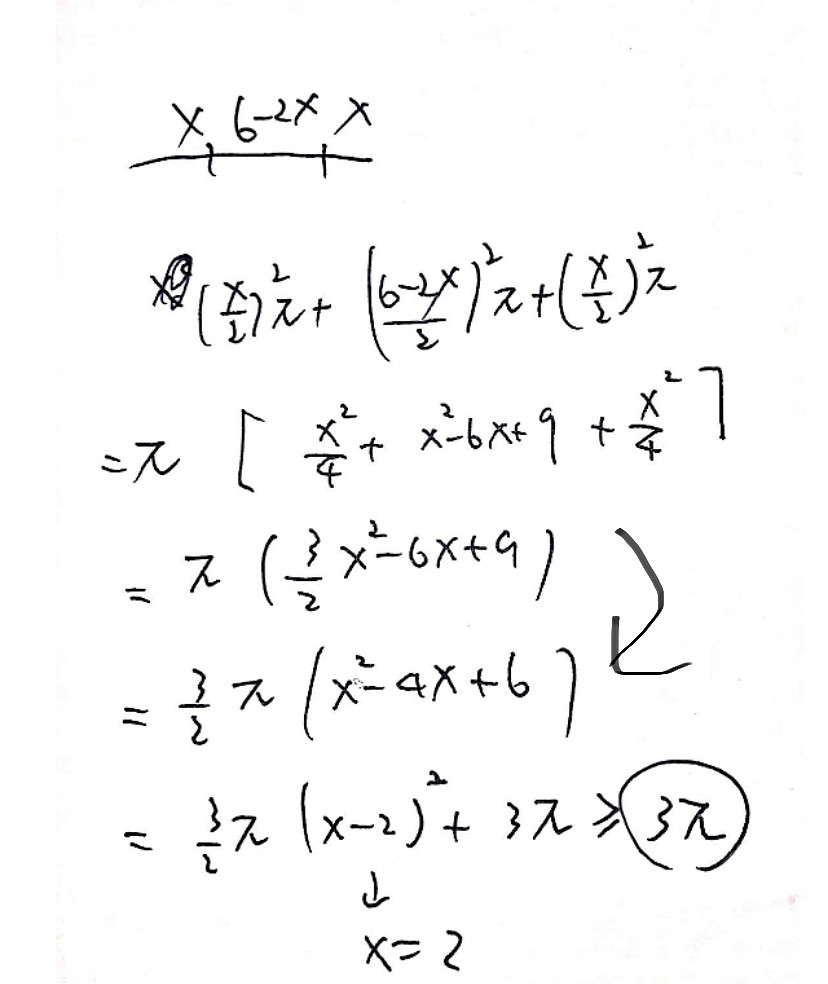 x 6-2x x
(x/2)²π + ((6-2x)/2)²π + (x/2)²π
= π [ x²/4 + x²-6x+9 + x²/4 ]
= π (3/2 x²-6x+9)
= 3/2 π (x²-4x+6)
= 3/2 π (x-2)² + 3π ≥ 3π
↓
x=2